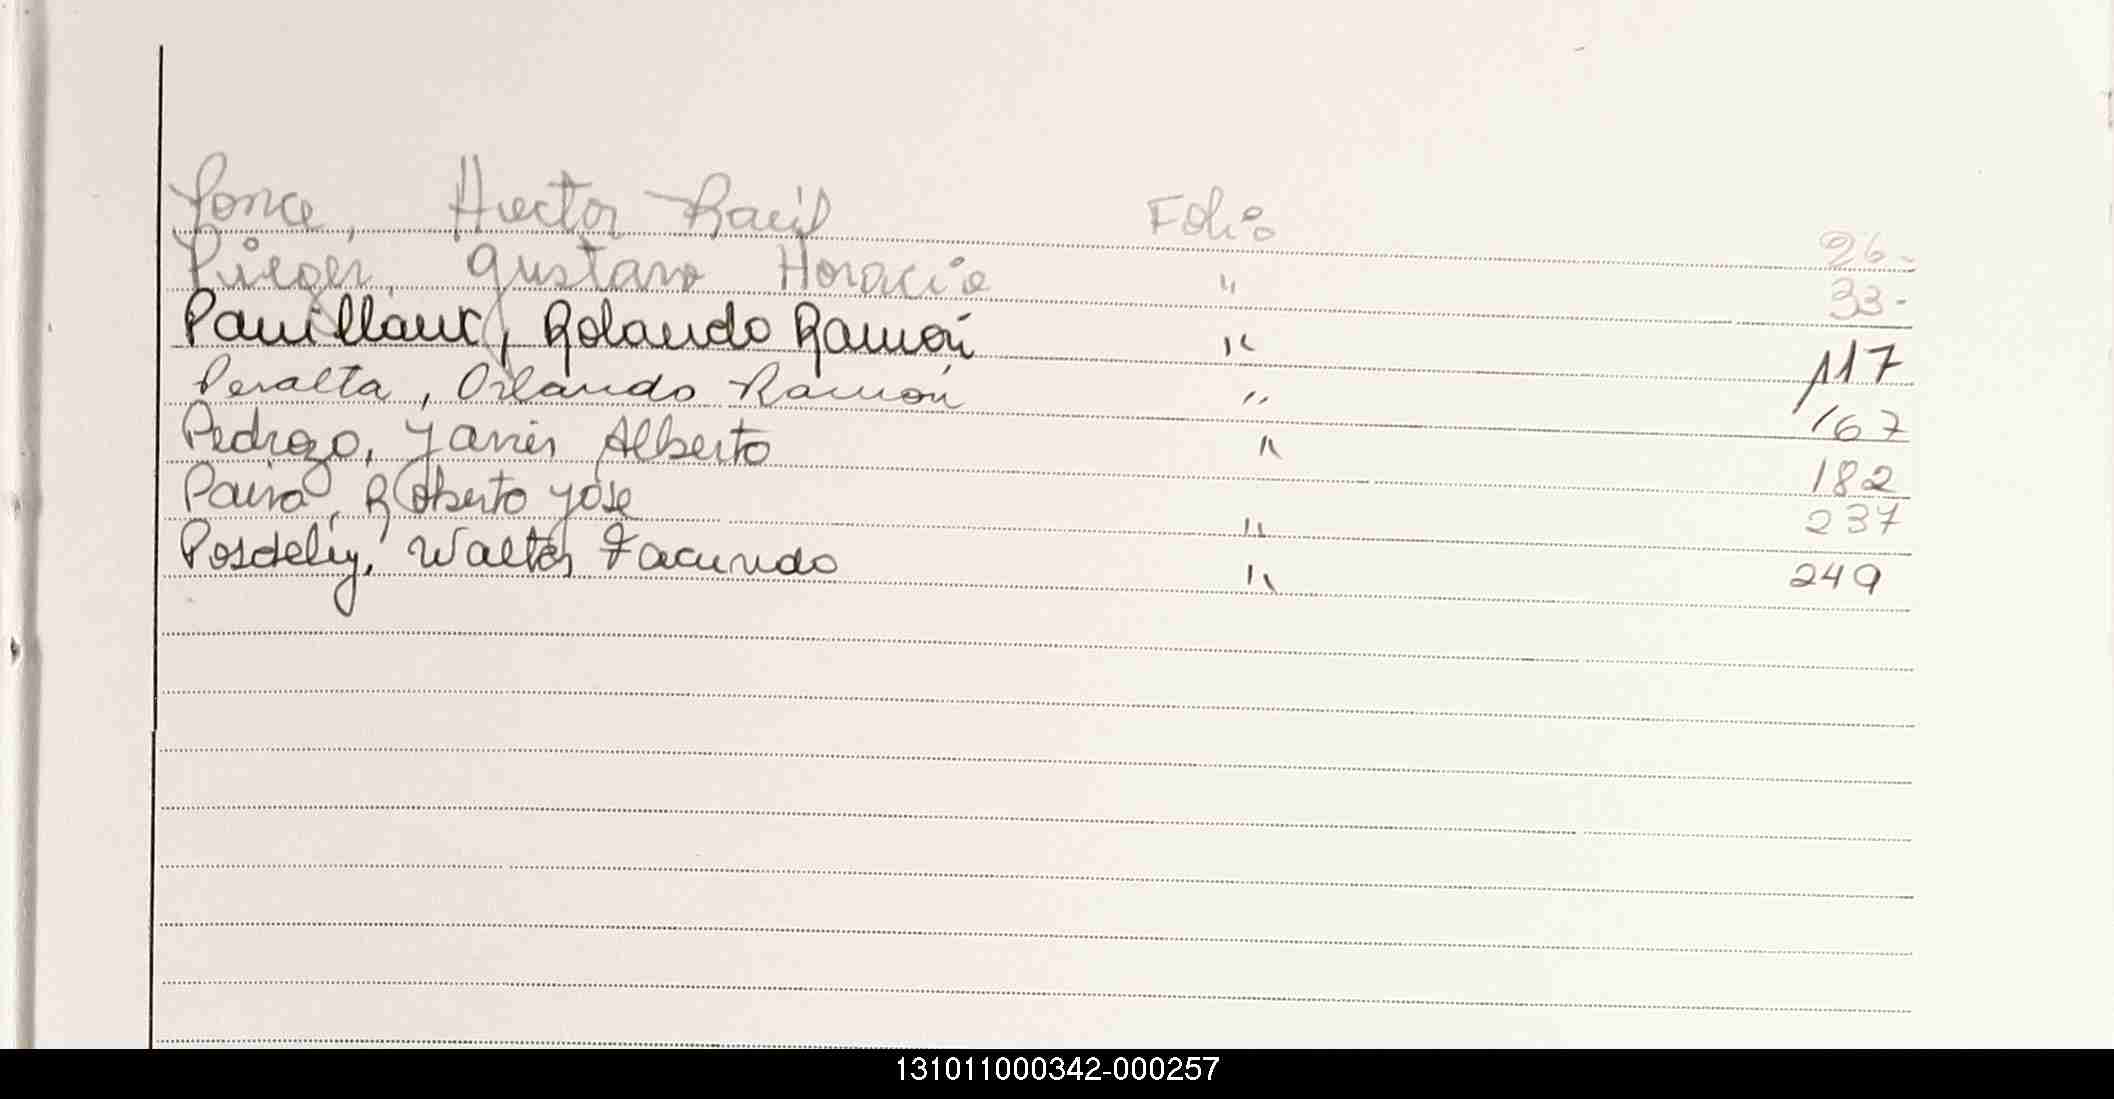 Ponce, Hector Raúl Folio 26-
Púeger, Gustavo Horacio " 33-
Rolando Ramón " 117
Peralta, Orlando Ramón " 167
Pedrozo, Javier Alberto " 182
Paira, Roberto José " 237
Walter Facundo " 249
131011000342-000257